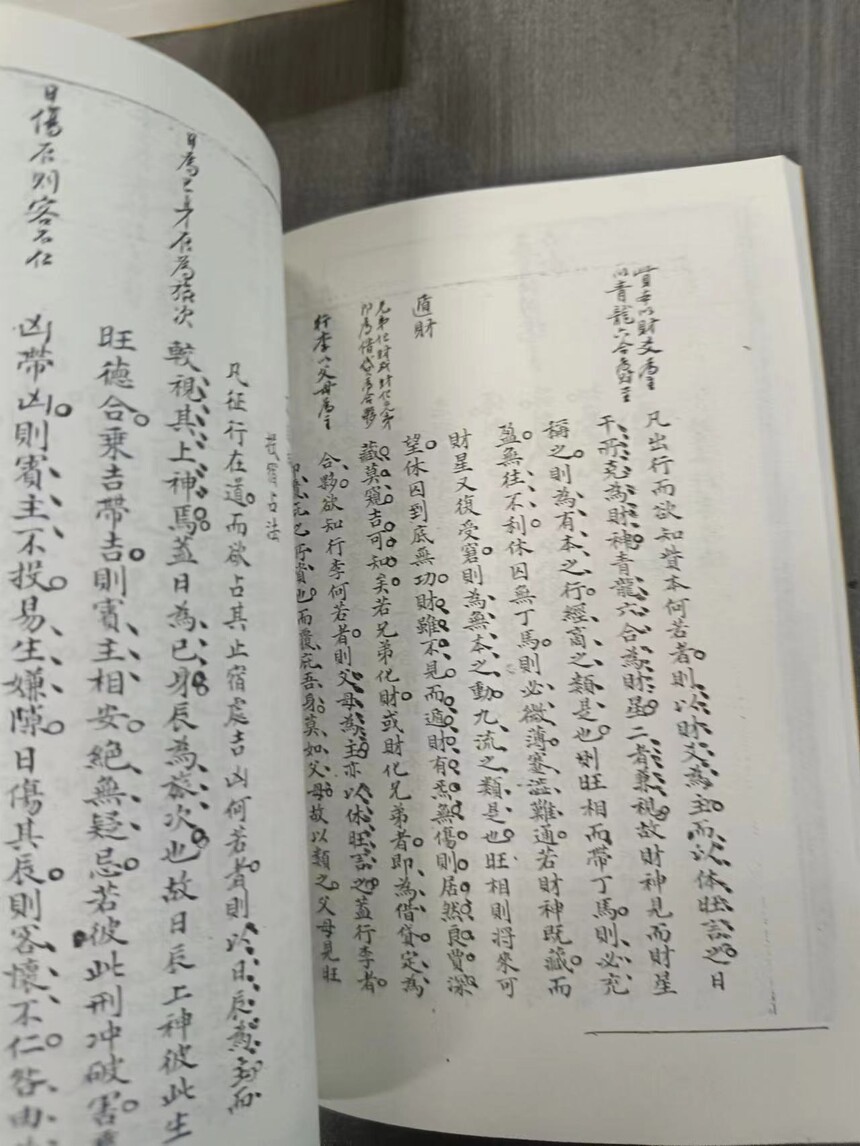 貲本以財爻為主
以青龍六合為財星
凡出行而欲知貲本何若者則以財爻為主而以休旺試之日
干所克為財神青龍六合為財星二者兼視故財神見而財星
稱之則為有本之行經商之類是也則旺相而帶丁馬則必充
盈無往不利休囚無丁馬則必微薄蹇澁難通若財神既藏而
財星又復受窘則為無本之動九流之類是也旺相則將來可
遁財
望休囚到底無功財雖不見而遁財有炁無傷則居然良賈深
兄弟化財或財化兄弟
即為借貸為合夥
藏莫窺吉可知矣若兄弟化財或財化兄弟者即為借貸定為
行李以父母為主
合夥欲知行李何若者則父母為主亦以休旺試之蓋行李者
而覆庇吾身莫如父母故以類之父母見旺
投宿占法
凡征行在道而欲占其止宿處吉凶何若者則以日辰為主而
日為己身辰為旅次
較視其上神焉蓋日為己身辰為旅次也故日辰上神彼此生
旺德合乘吉帶吉則賓主相安絕無疑忌若彼此刑冲破害
日傷辰則客不仁
凶帶凶則賓主不投易生嫌隙日傷其辰則客懷不仁咎由